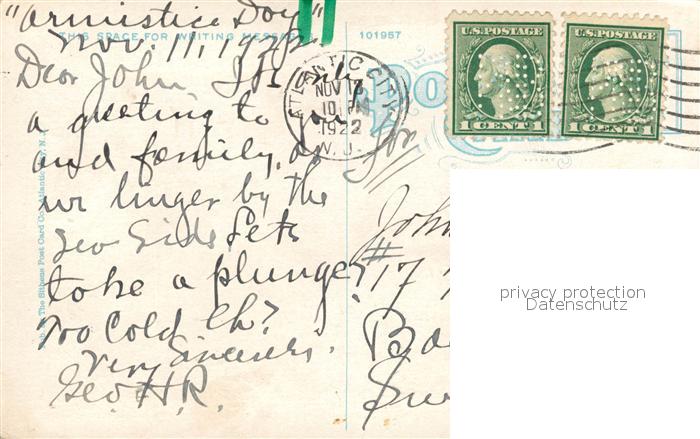 "Armistice Day"
THIS SPACE FOR WRITING MESSAGE
Nov. 11, 1922
Dear John, Its only
a greeting to you
and family, as
we linger by the
Sea Side Lets
take a plunge?
Too Cold Eh?
Very Sincerely.
Geo H.R.
101957
ATLANTIC CITY
NOV 13
10 PM
1922
N.J.
U.S. POSTAGE
1 CENT 1
U.S. POSTAGE
1 CENT 1
for
John
# 17
Pub. by The Sithens Post Card Co., Atlantic City, N.J.
privacy protection
Datenschutz